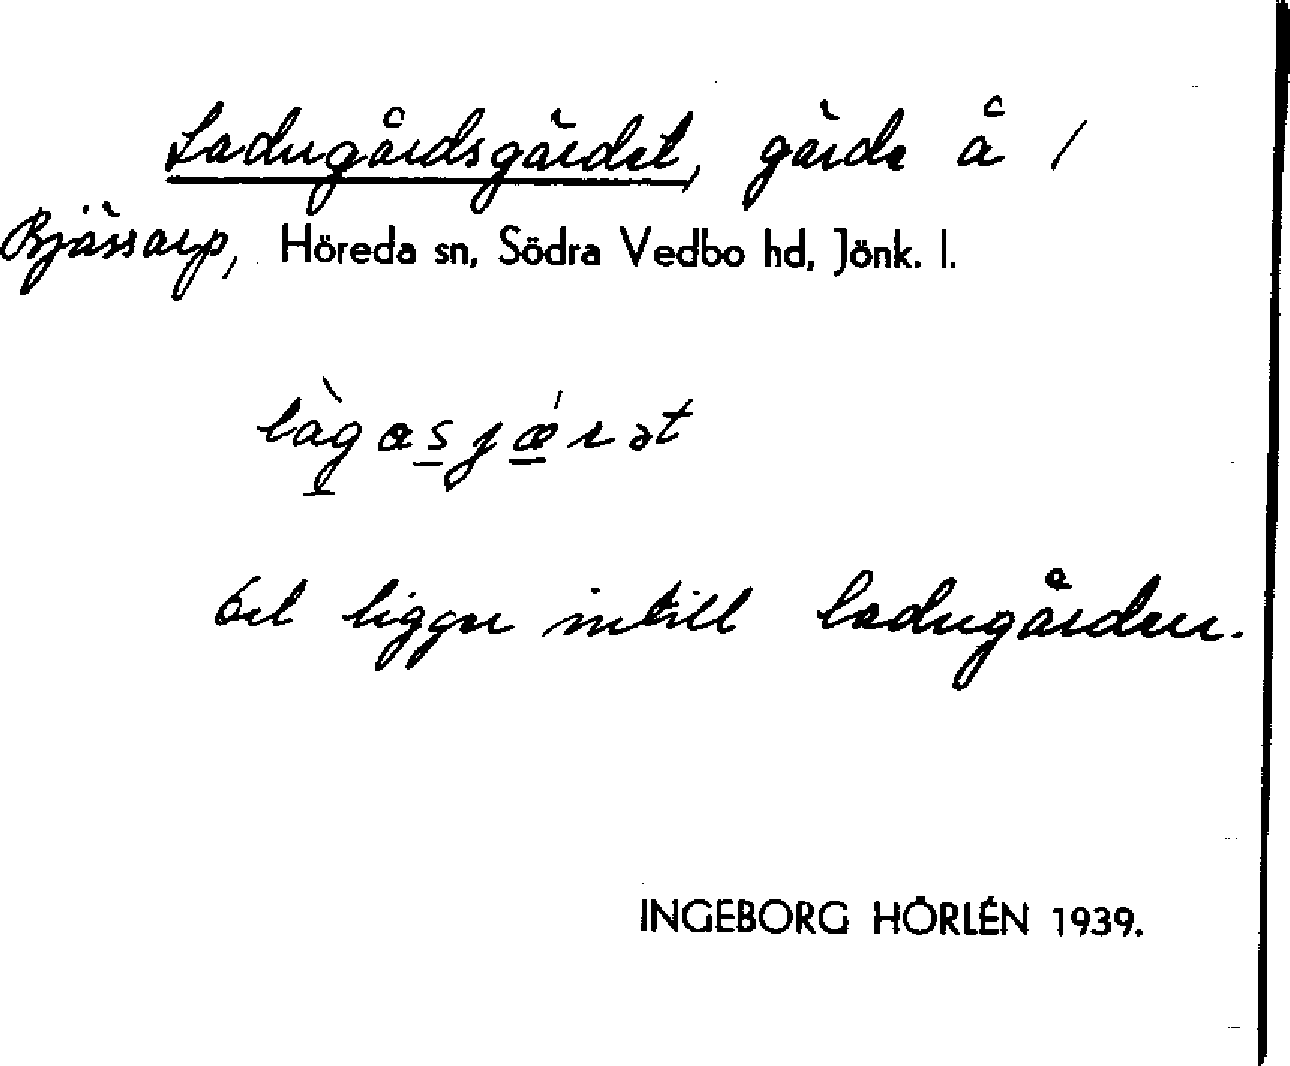 Ladugårdsgärdet, gärde å /
Bjässarp, Höreda sn, Södra Vedbo hd, Jönk. l.
làgasjǽrət
Det ligger intill ladugården.
INGEBORG HÖRLÉN 1939.